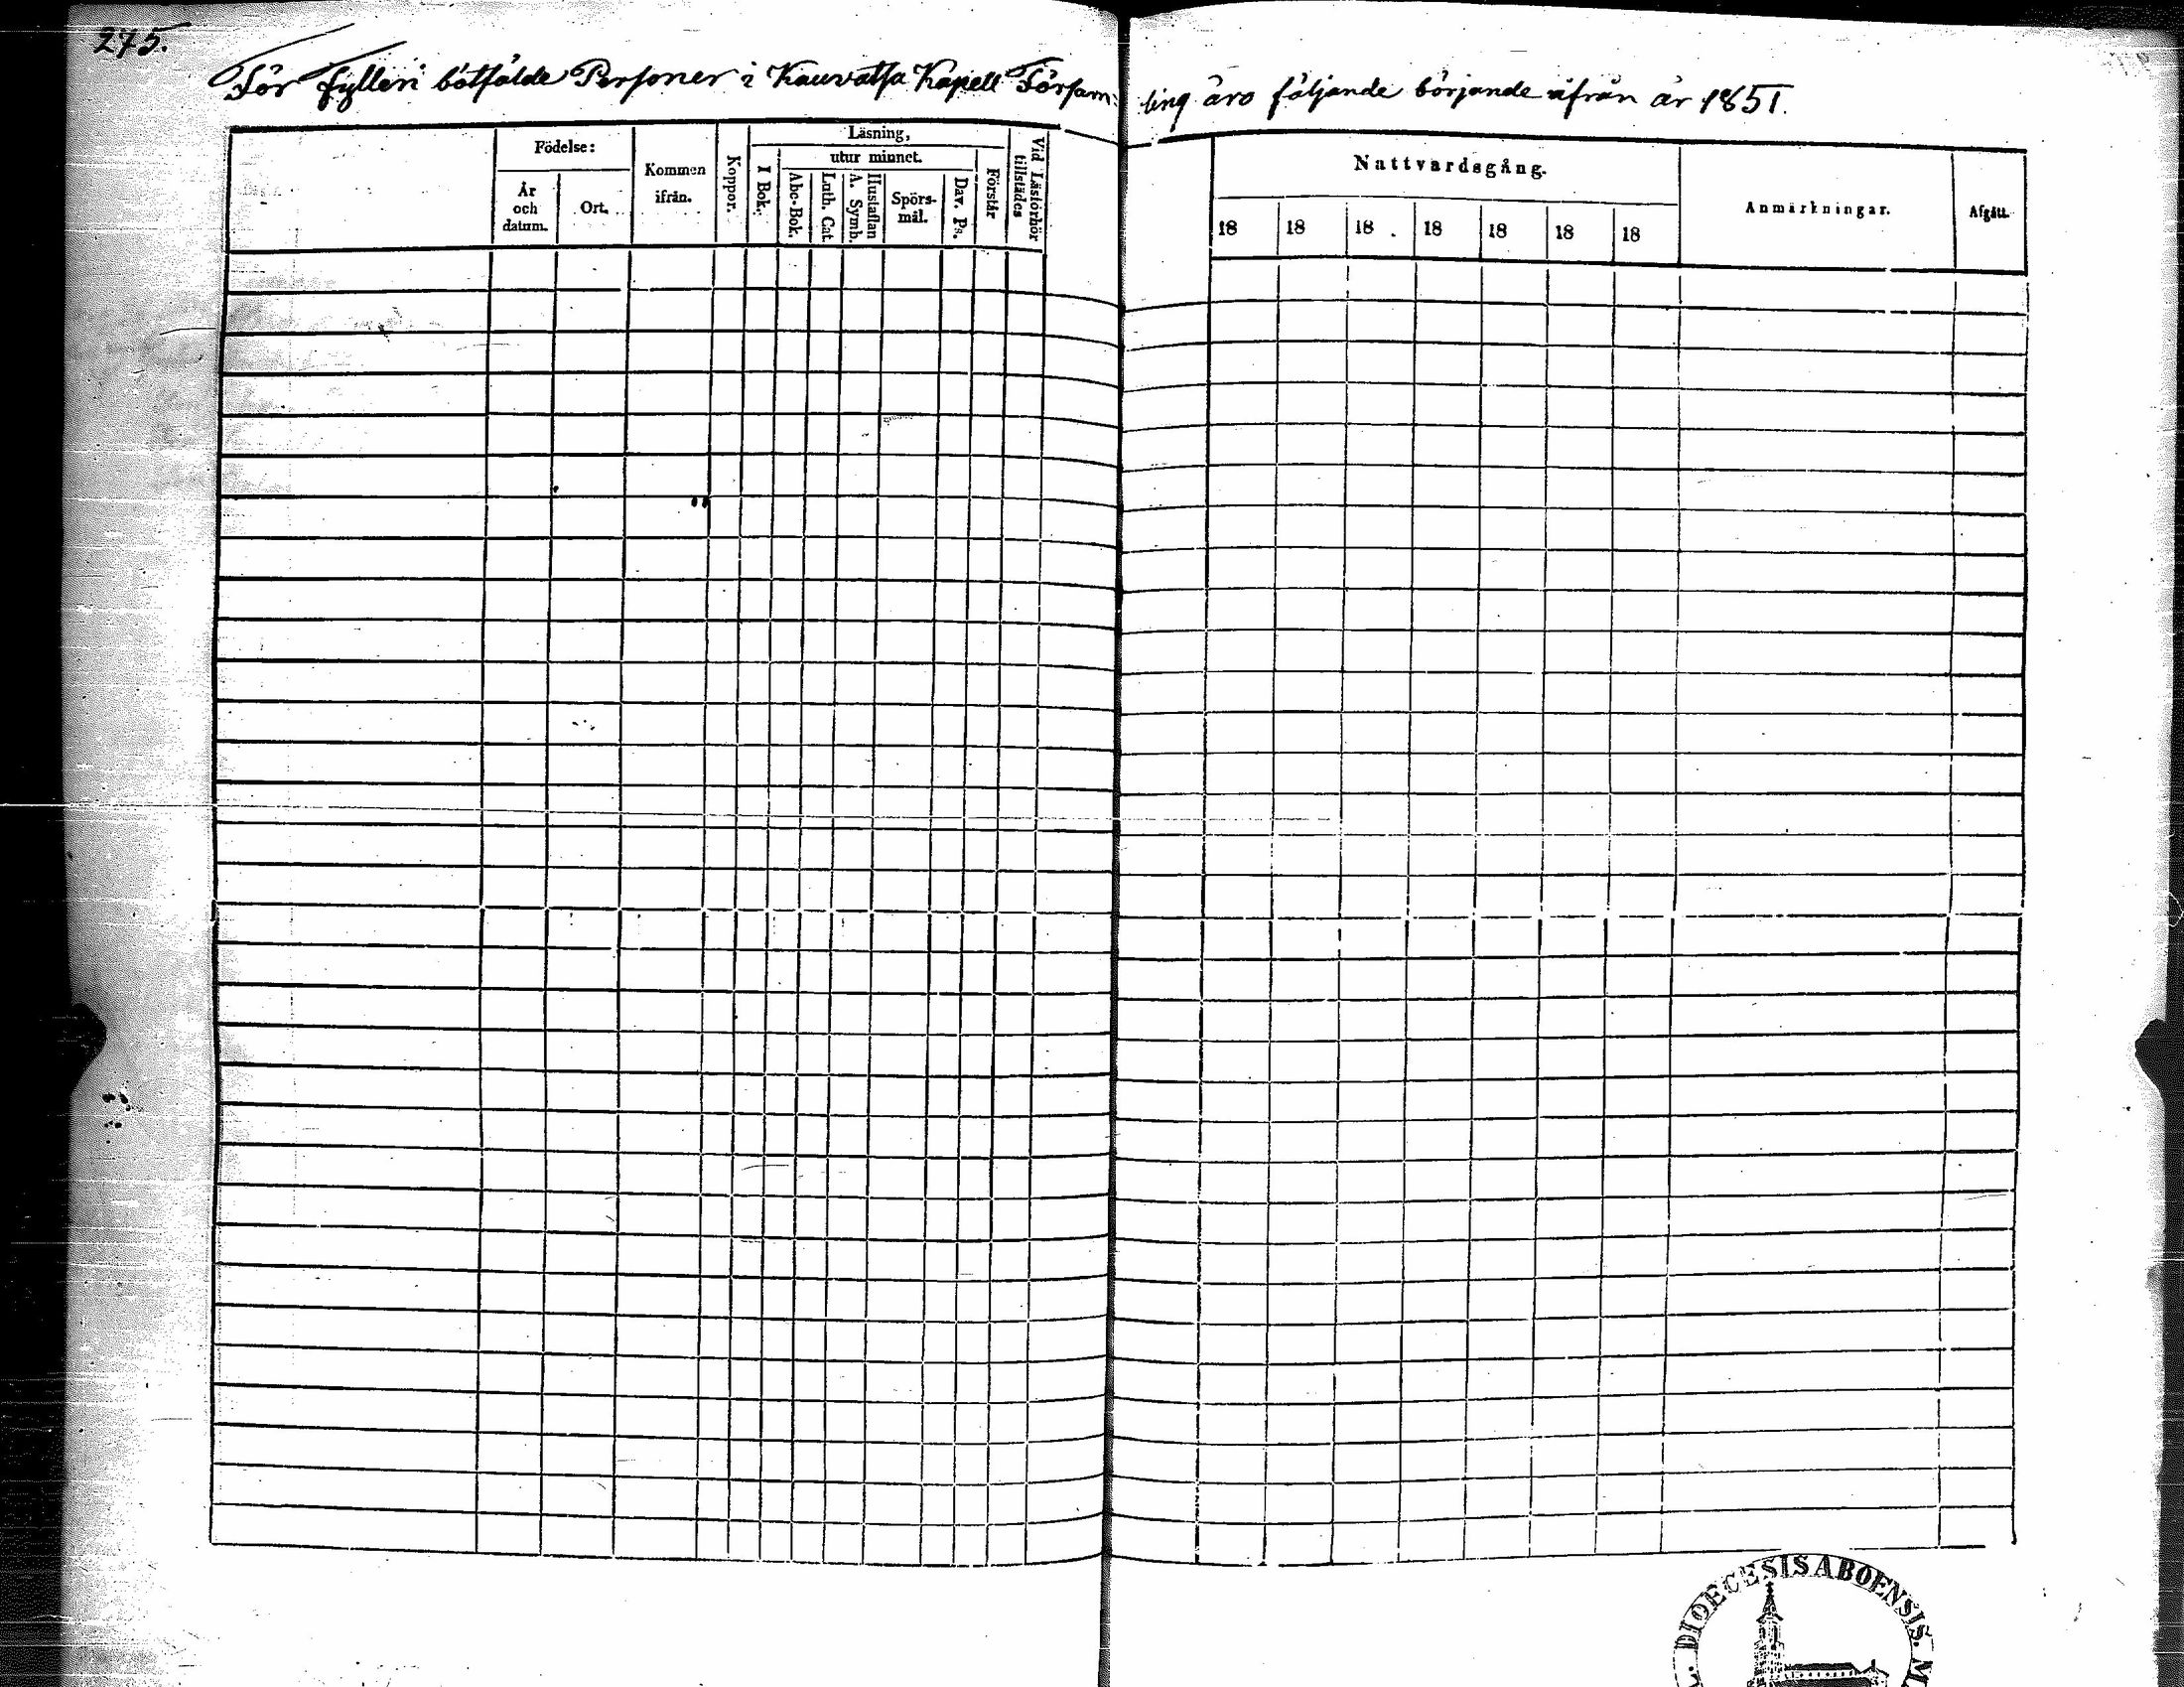 275.
För fylleri botfälde Personer i Kauvatsa Kapell Församling äro följande började ifrån år 1851.
Födelse:
År och datum.
Ort.
Kommen ifrån.
Koppor.
Läsning,
I Bok.
utur minnet.
Abc-Bok.
Luth. Cat.
Hustaflan A. Symb.
Spörsmål.
Dav. Ps.
Förstår
Vid Läsförhör tillstädes
Nattvardsgång.
18 18 18 18 18 18 18
Anmärkningar.
Afgått.
DIOECESIS ABOENSIS.